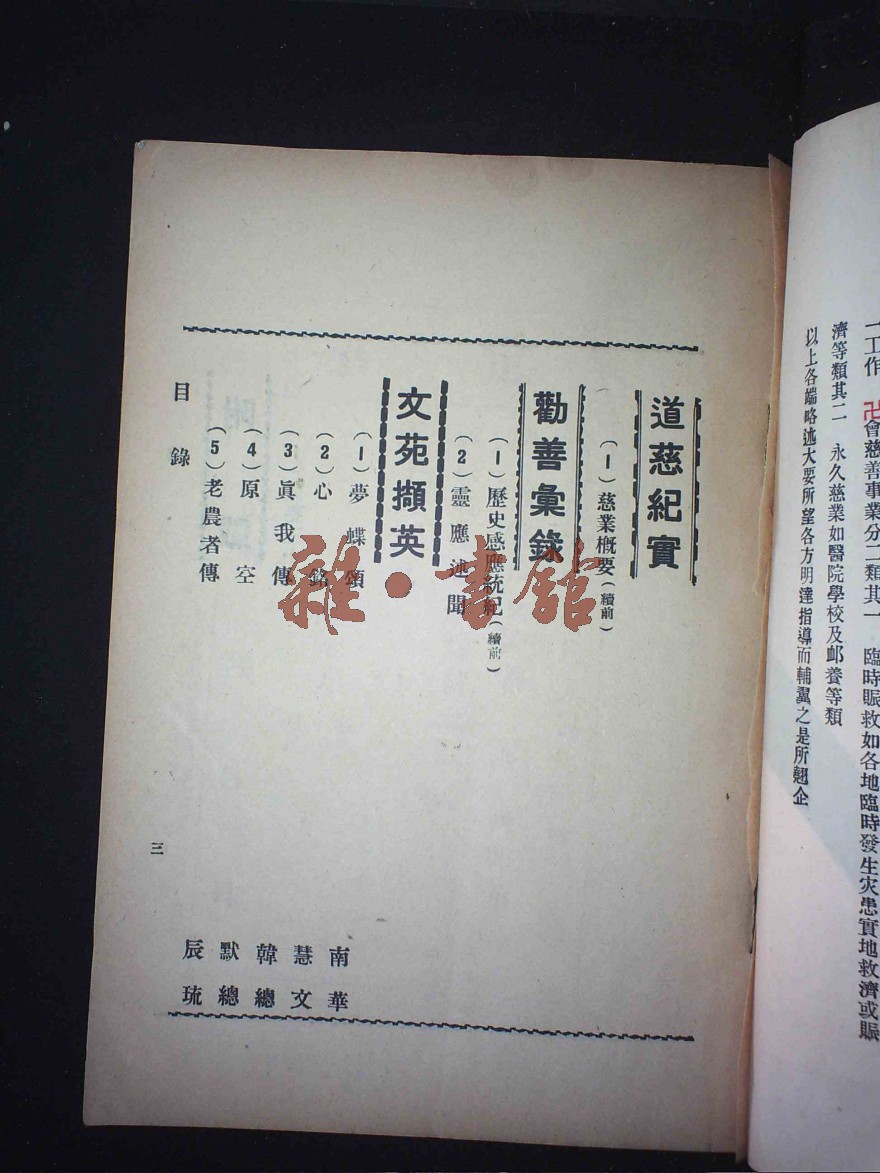 一工作 卍會慈善事業分二類其一 臨時賑救如各地臨時發生灾患實地救濟或賑
濟等類其二 永久慈業如醫院學校及卹養等類
以上各端略述大要所望各方明達指導而輔翼之是所翹企
道慈紀實
(1)慈業概要(續前)
勸善彙錄
(1)歷史感應統紀(續前)
(2)靈應述聞
文苑擷英
(1)夢蝶頌 南華
(2)心銘 慧文
(3)眞我傳 韓總
(4)原空 默總
(5)老農者傳 辰琉
目錄
三
雜·書館